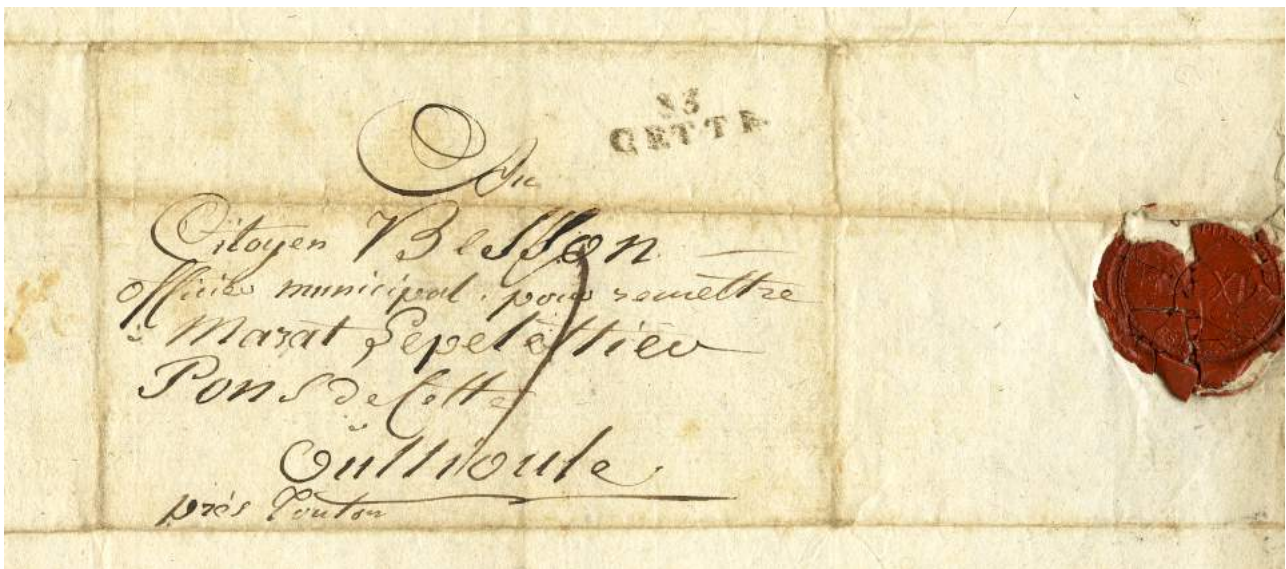 CETTE
Au
Citoyen Besson
officier municipal. pour remettre
à Marat Lepelettier
Pons de Cette
à Oullioule
près Toulon